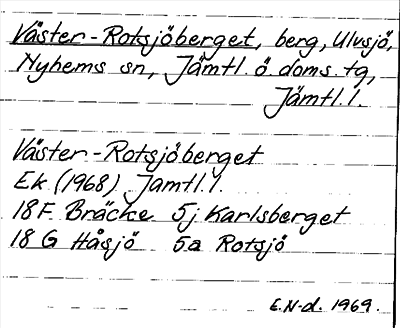 Väster-Rotsjöberget, berg, Ulvsjö,
Nyhems sn, Jämtl. ö doms. tg,
Jämtl. l.
Väster-Rotsjöberget
Ek (1968) Jämtl. l.
18 F Bräcke 5j Karlsberget
18 G Håsjö 5a Rotsjö
E.N-d. 1969.